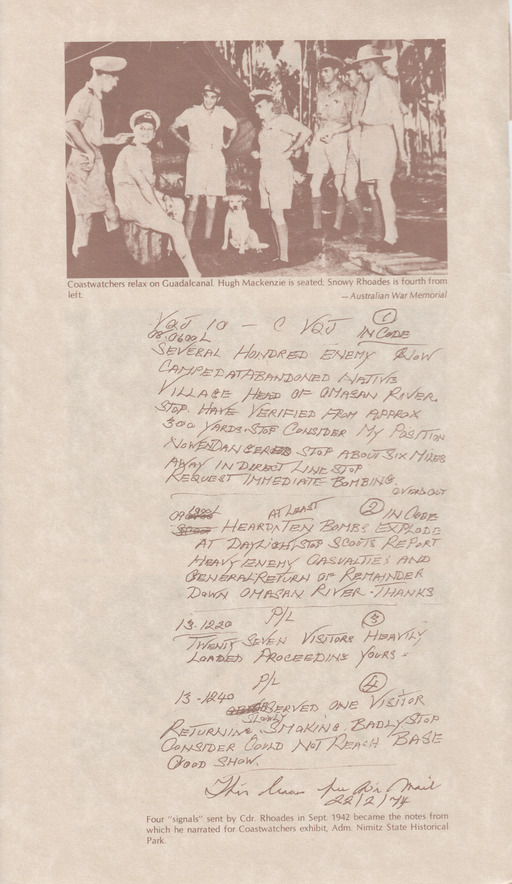 Coastwatchers relax on Guadalcanal. Hugh Mackenzie is seated; Snowy Rhoades is fourth from
left.
— Australian War Memorial
VQJ 10 — C VQJ IN CODE
1
0600L
SEVERAL HUNDRED ENEMY NOW
CAMPED AT ABANDONED NATIVE
VILLAGE HEAD OF OMASAN RIVER
STOP. HAVE VERIFIED FROM APPROX
300 YARDS. STOP CONSIDER MY POSITION
NOW ENDANGERED STOP ABOUT SIX MILES
AWAY IN DIRECT LINE STOP
REQUEST IMMEDIATE BOMBING.
OVER & OUT
AT LEAST 2 IN CODE
HEARD TEN BOMBS EXPLODE
AT DAYLIGHT STOP SCOUTS REPORT
HEAVY ENEMY CASUALTIES AND
GENERAL RETURN OF REMAINDER
DOWN OMASAN RIVER - THANKS
13-1220 P/L 3
TWENTY SEVEN VISITORS HEAVILY
LOADED PROCEEDING YOURS -
13-1240 P/L 4
OBSERVED ONE VISITOR
SLOWLY
RETURNING SMOKING BADLY STOP
CONSIDER COULD NOT REACH BASE
GOOD SHOW.
This Air Mail
22/2/74
Four "signals" sent by Cdr. Rhoades in Sept. 1942 became the notes from
which he narrated for Coastwatchers exhibit, Adm. Nimitz State Historical
Park.